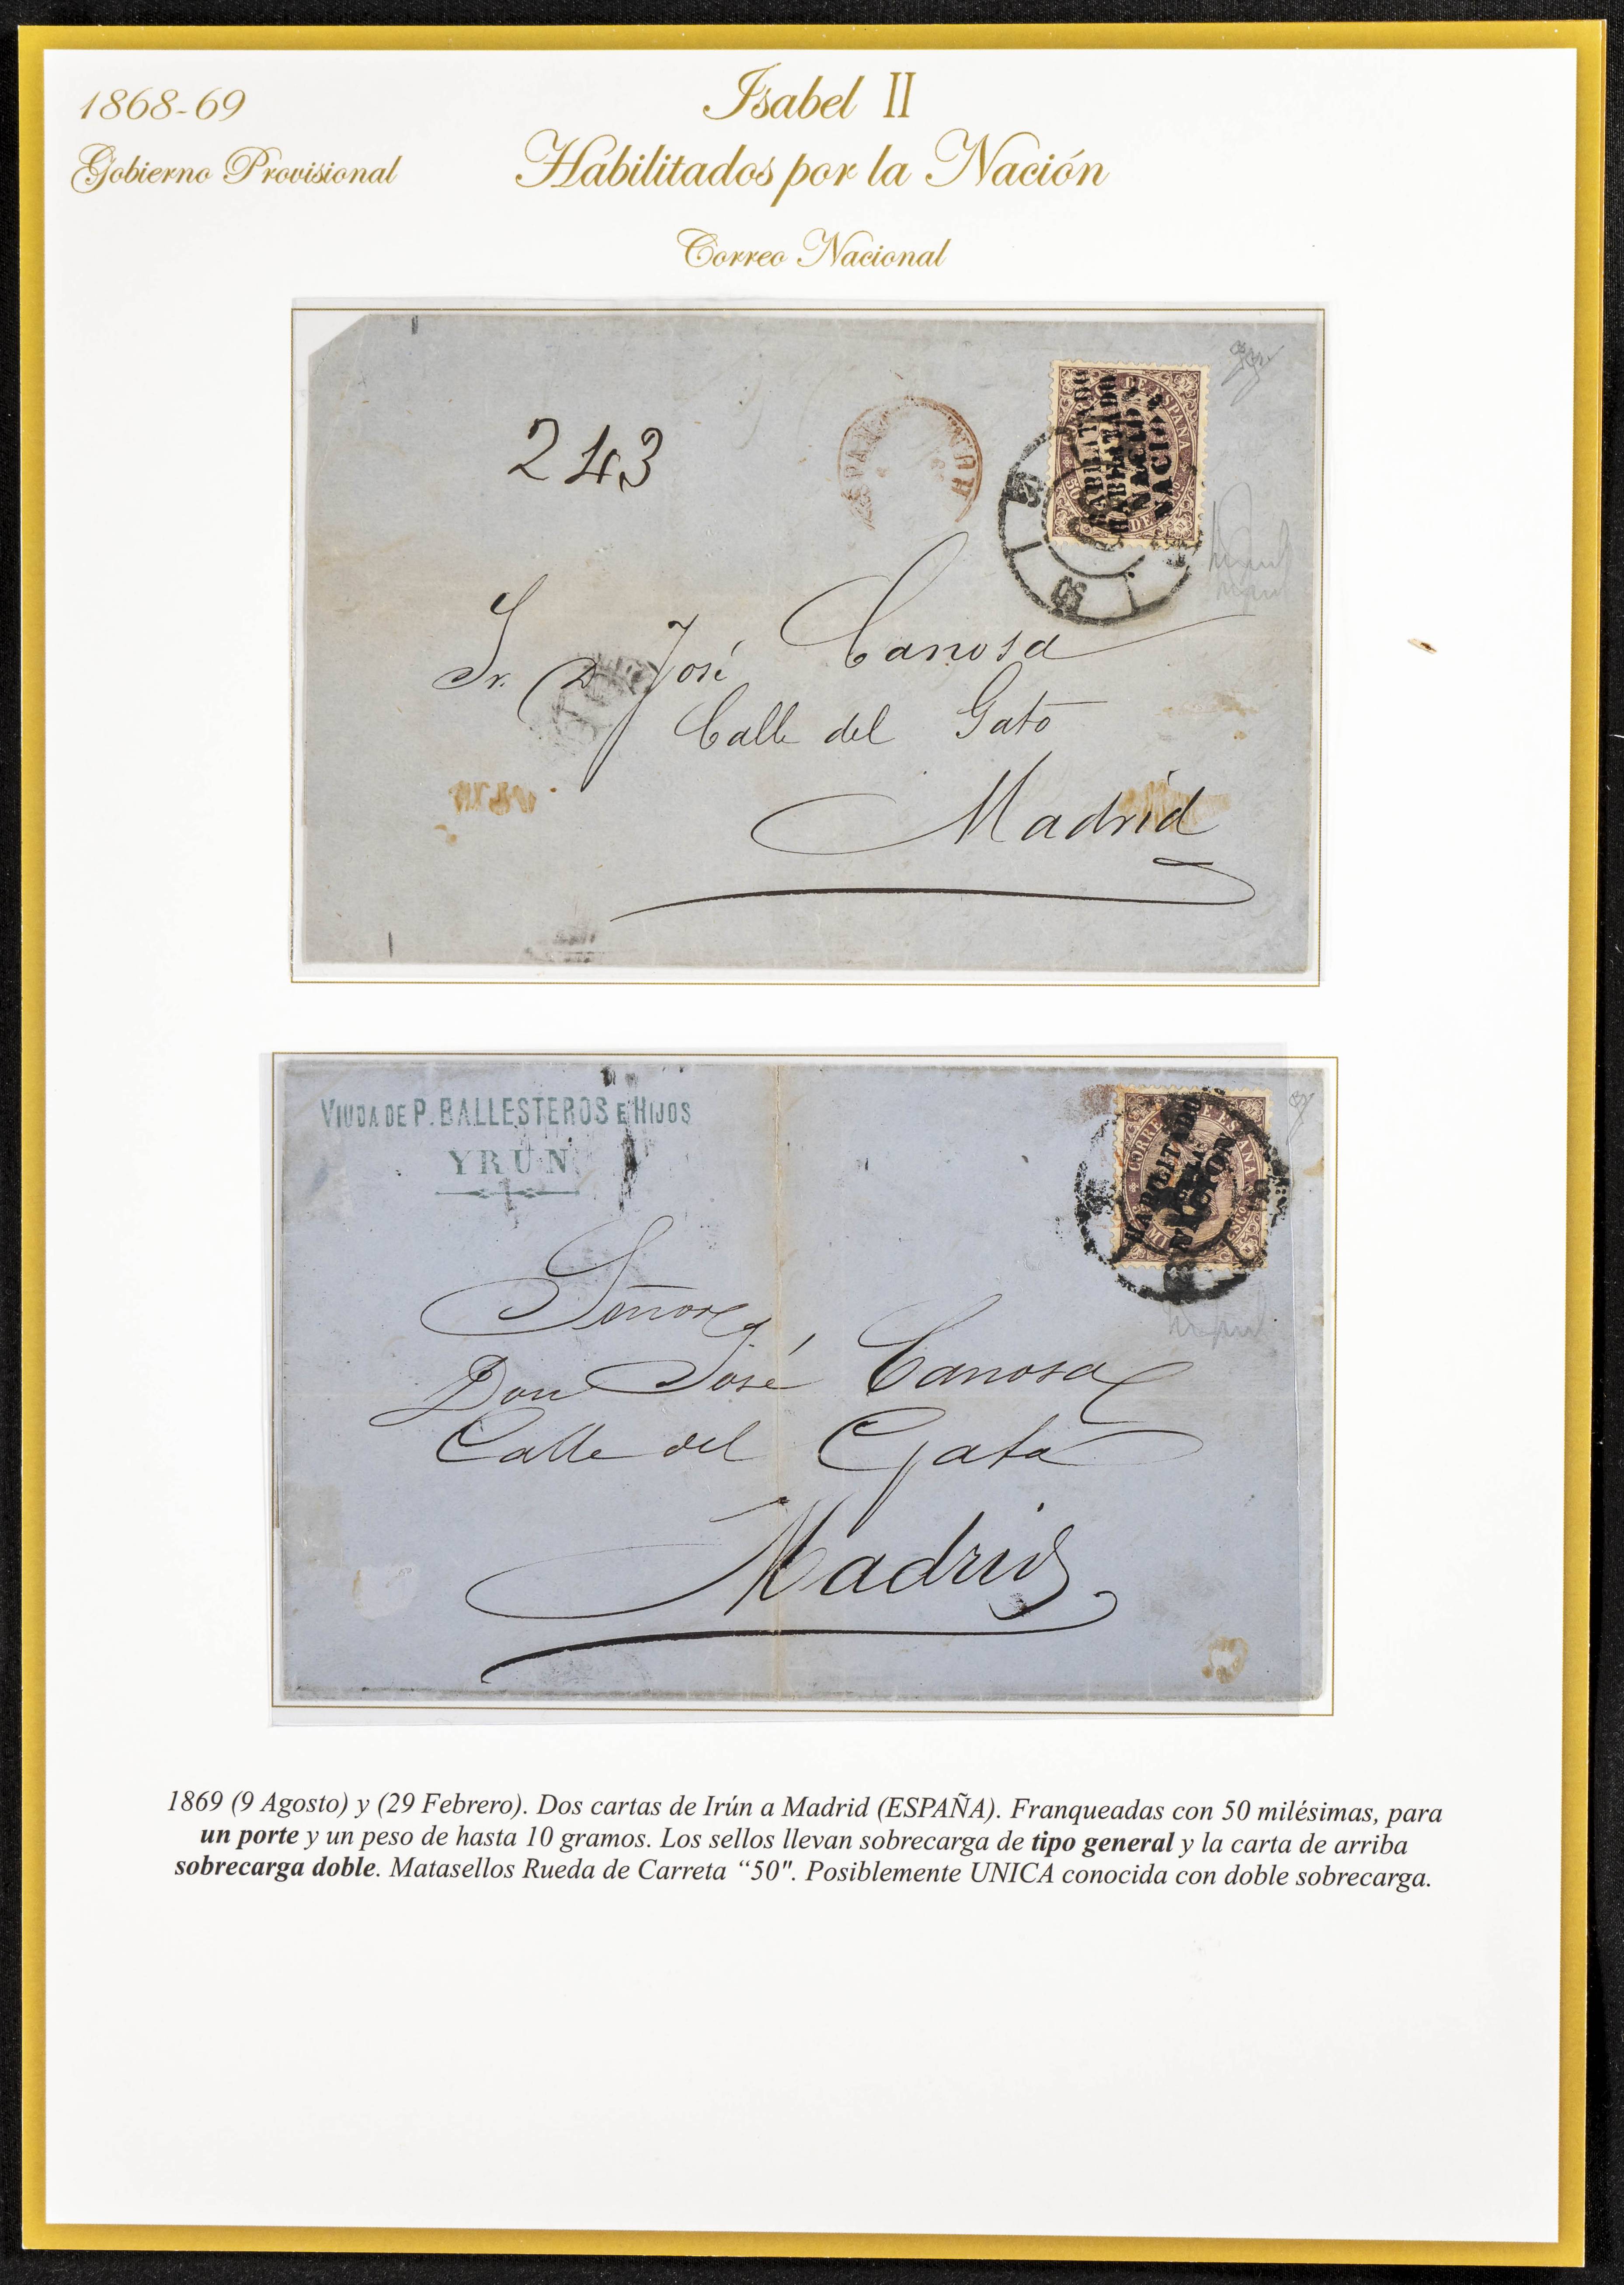 1868-69
Gobierno Provisional
Isabel II
Habilitados por la Nación
Correo Nacional
243
HABILITADO
HABILITADO
NACION
NACION
DE ESPAÑA
50
Sr. D. José Canosa
Calle del Gato
Madrid
VIUDA DE P. BALLESTEROS E HIJOS
YRUN
HABILITADO
NACION
Señor
Don José Canosa
Calle del Gato
Madrid
1869 (9 Agosto) y (29 Febrero). Dos cartas de Irún a Madrid (ESPAÑA). Franqueadas con 50 milésimas, para
un porte y un peso de hasta 10 gramos. Los sellos llevan sobrecarga de tipo general y la carta de arriba
sobrecarga doble. Matasellos Rueda de Carreta “50". Posiblemente UNICA conocida con doble sobrecarga.